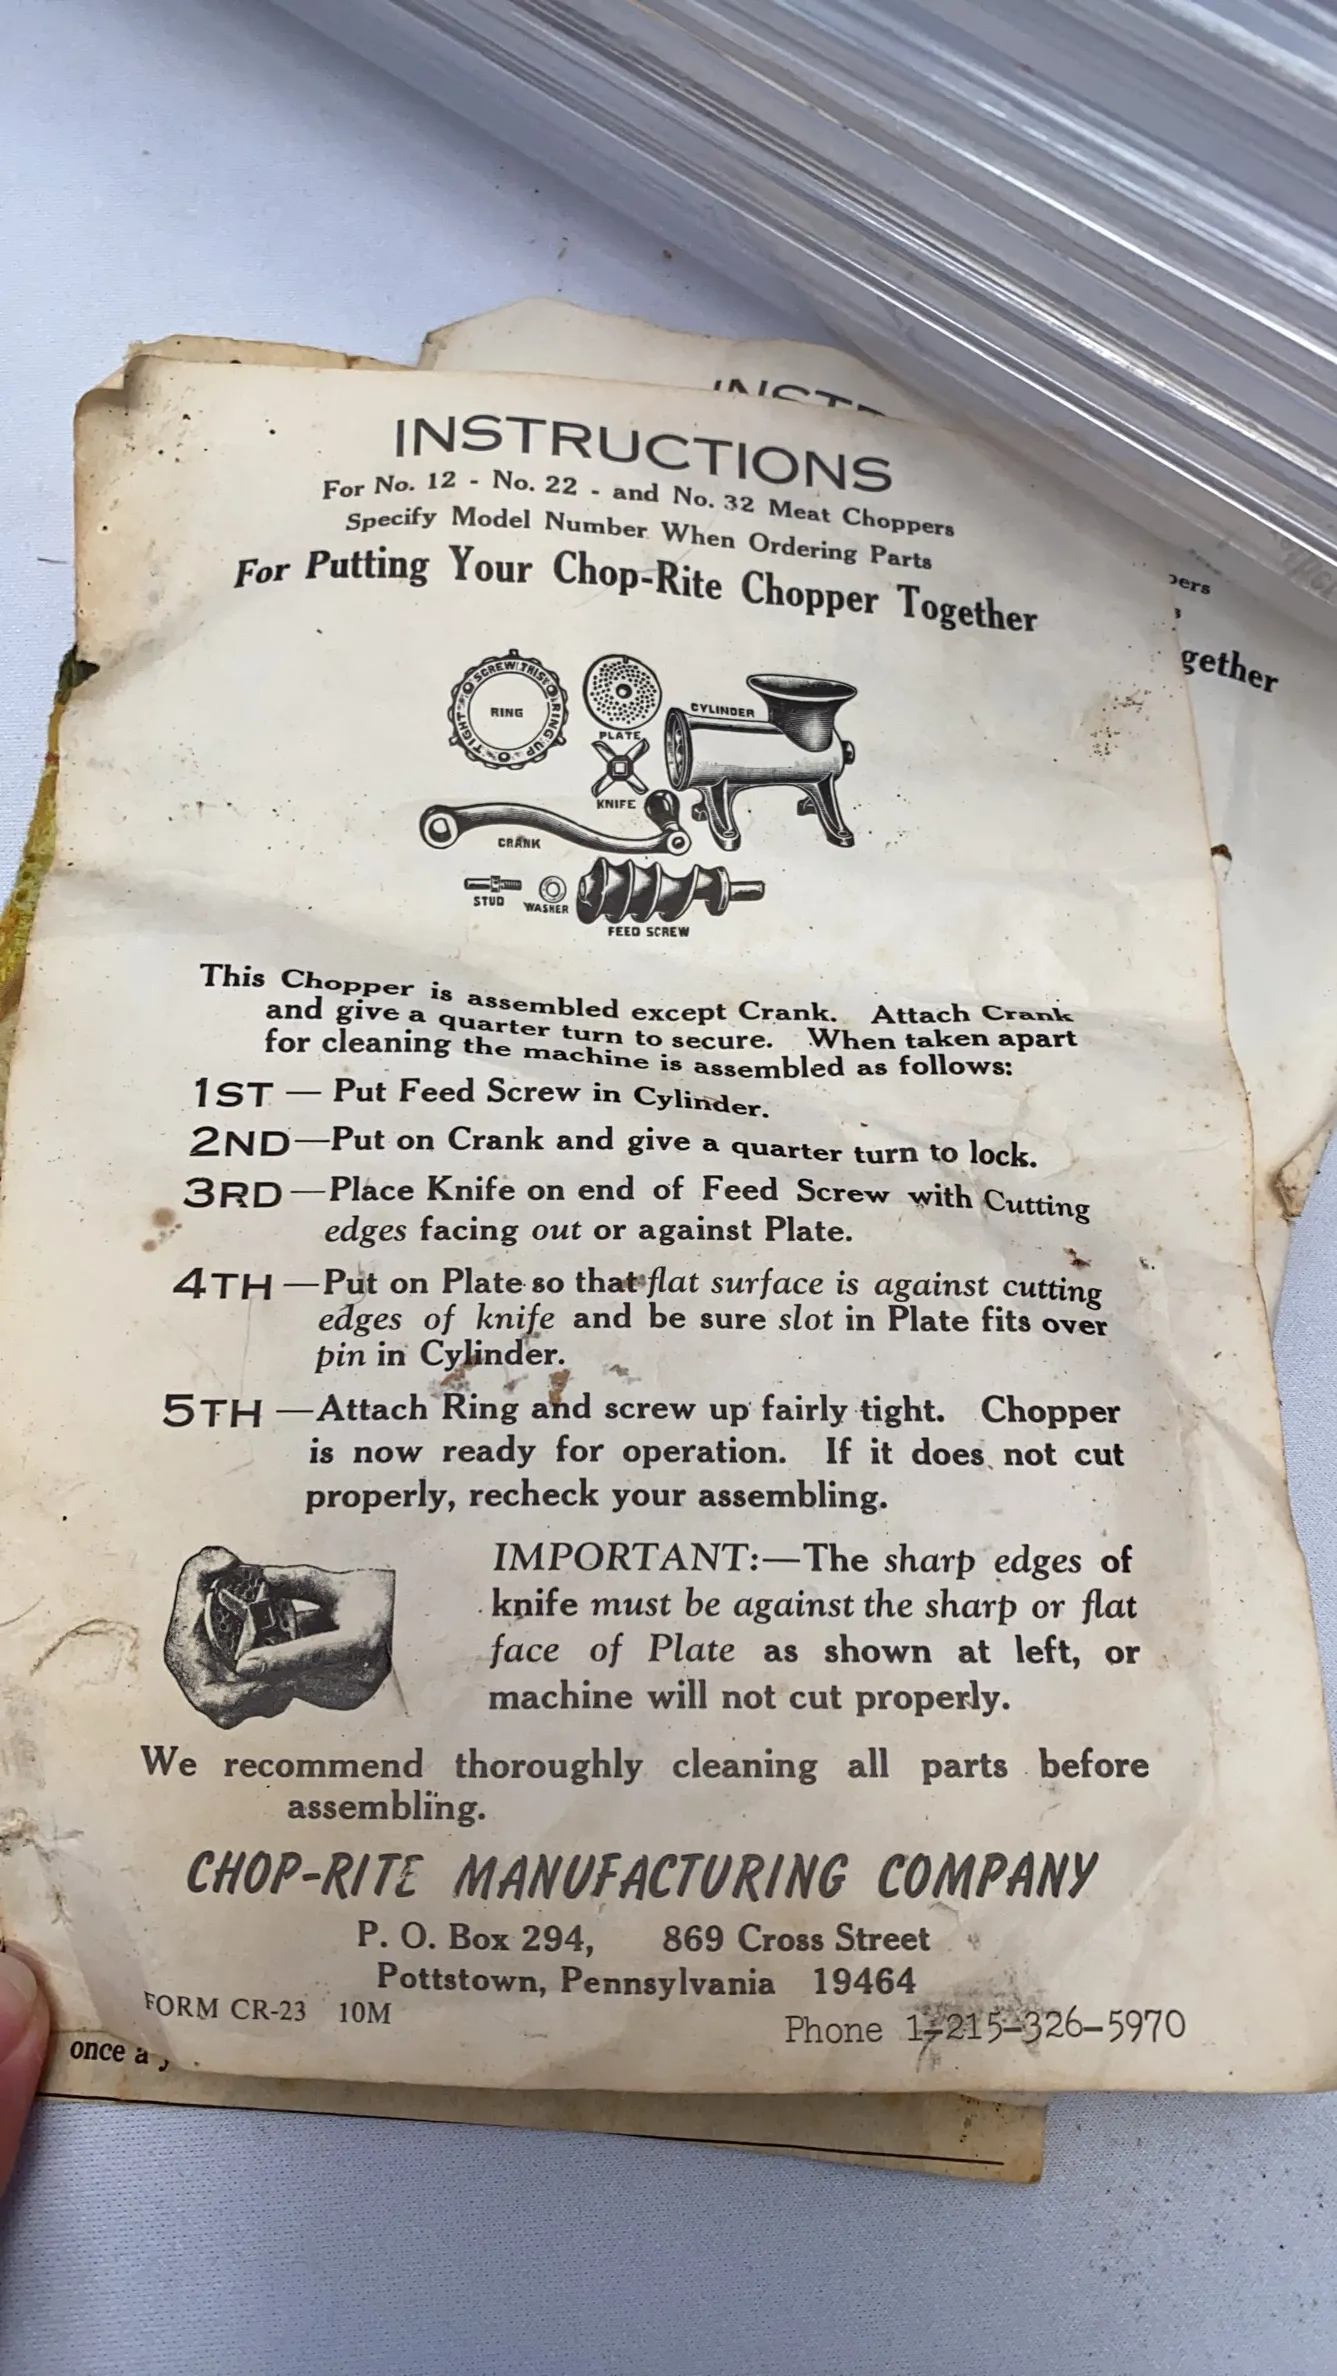 INSTR
INSTRUCTIONS
For No. 12 - No. 22 - and No. 32 Meat Choppers
Specify Model Number When Ordering Parts
For Putting Your Chop-Rite Chopper Together
pers
s
gether
SCREW THIS RING UP TIGHT
RING
PLATE
CYLINDER
KNIFE
CRANK
STUD
WASHER
FEED SCREW
This Chopper is assembled except Crank. Attach Crank
and give a quarter turn to secure. When taken apart
for cleaning the machine is assembled as follows:
1ST — Put Feed Screw in Cylinder.
2ND—Put on Crank and give a quarter turn to lock.
3RD—Place Knife on end of Feed Screw with Cutting
edges facing out or against Plate.
4TH—Put on Plate so that flat surface is against cutting
edges of knife and be sure slot in Plate fits over
pin in Cylinder.
5TH—Attach Ring and screw up fairly tight. Chopper
is now ready for operation. If it does not cut
properly, recheck your assembling.
IMPORTANT:—The sharp edges of
knife must be against the sharp or flat
face of Plate as shown at left, or
machine will not cut properly.
We recommend thoroughly cleaning all parts before
assembling.
CHOP-RITE MANUFACTURING COMPANY
P. O. Box 294, 869 Cross Street
Pottstown, Pennsylvania 19464
FORM CR-23 10M
Phone 1-215-326-5970
once a